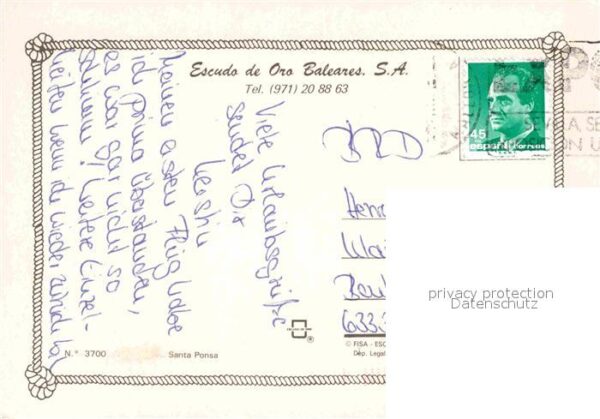 Escudo de Oro Baleares. S.A.
Tel. (971) 20 88 63
Meinen ersten Flug habe
ich prima überstanden,
es war gar nicht so
schlimm! Weitere Einzel-
heiten wenn ich wieder zurück bin
Viele Urlaubsgrüße
sendet Dir
Kerstin
BRD
45
españa correos
633
privacy protection
Datenschutz
© FISA - ESC
Dep. Legal
N.° 3700
Santa Ponsa